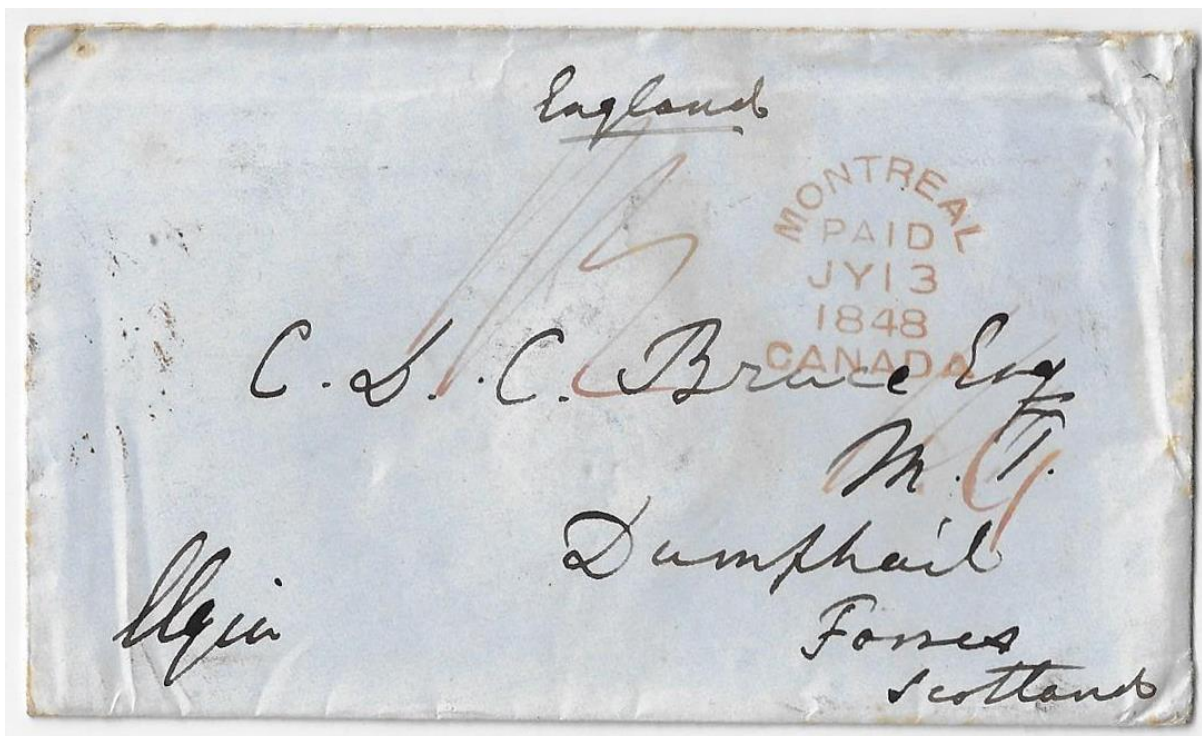 England
MONTREAL
PAID
JY 13
1848
CANADA
C. D. C. Bruce Esq
M. T.
Dumphail
Forres
Scotland
Elgin